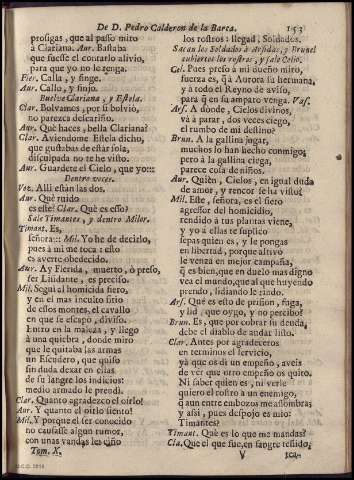 De D. Pedro Calderon de la Barca.
153
prosigas, que al passo miro
à Clariana. Aur. Bastaba
que fuesse el contarlo alivio,
para que yo no le tenga.
Fier. Calla, y finge.
Aur. Callo, y finjo.
Buelve Clariana, y Estela.
Clar. Bolvamos, por si bolviò,
no parezca descariño.
Aur. Què haces, bella Clariana?
Clar. Aviendome Estela dicho,
que gustabas de estàr sola,
disculpada no te he visto.
Aur. Guardete el Cielo, que yo:::
Dentro voces.
Voc. Allì estàn las dos.
Aur. Què ruido
es esse? Clar. Què es esso?
Sale Timantes, y dentro Milor.
Timant. Es,
señora::: Mil. Yo he de decirlo,
pues à mì me toca : ello
es averte obedecido.
Aur. Ay Fierida, muerto, ò preso,
ser Lisidante, es preciso.
Mil. Seguì al homicida fiero,
y en el mas inculto sitio
de essos montes, el cavallo
en que se escapò, diviso.
Entro en la maleza, y llego
à una quiebra, donde miro
que le quitaba las armas
un Escudero, que quiso
sin duda dexar en ellas
de su sangre los indicios:
medio armado le prendì.
Clar. Quanto agradezco el oirlo!
Aur. Y quanto el oirlo siento!
Mil. Y porque el ser conocido
no causasse algun rumor,
con unas vandas les ciño
Tom. X.
los rostros : llegad, Soldados.
Sacan los Soldados à Arsidas, y Brunel
cubiertos los rostros, y sale Celio.
Cel. Pues preso à mi dueño miro,
fuerza es, q̃ à Aurora su hermana,
y à todo el Reyno dè aviso,
para q̃ en su amparo venga. Vas.
Ars. A donde, Cielos divinos,
và à parar, dos veces ciego,
el rumbo de mi destino?
Brun. A la gallina jugar,
muchos lo han hecho conmigo;
pero à la gallina ciega,
parece cosa de niños.
Aur. Quièn, Cielos, en igual duda
de amor, y rencor se ha visto!
Mil. Este, señora, es el fiero
agressor del homicidio,
rendido à tus plantas viene,
y yo à ellas te suplico
sepas quien es, y le pongas
en libertad, porque altivo
le venza en mejor campaña,
q̃ es bien, que en duelo mas digno
vea el mundo, que al que huyendo
prendo, lidiando le rindo.
Ars. Què es esto de prision, fuga,
y lid, que oygo, y no percibo?
Brun. Es, que por cobrar su deuda,
debe el diablo de andar listo.
Clar. Antes por agradeceros
en terminos el servicio,
ya que os dà un empeño, aveis
de vèr que otro empeño os quito.
Ni saber quien es, ni verle
quiero el rostro à un enemigo,
q̃ aun entre embozos me assombra;
y assi, pues despojo es mio:
Timantes?
Timant. Què es lo que me mandas?
Cla. Que el que fue, en sangre teñido,
V